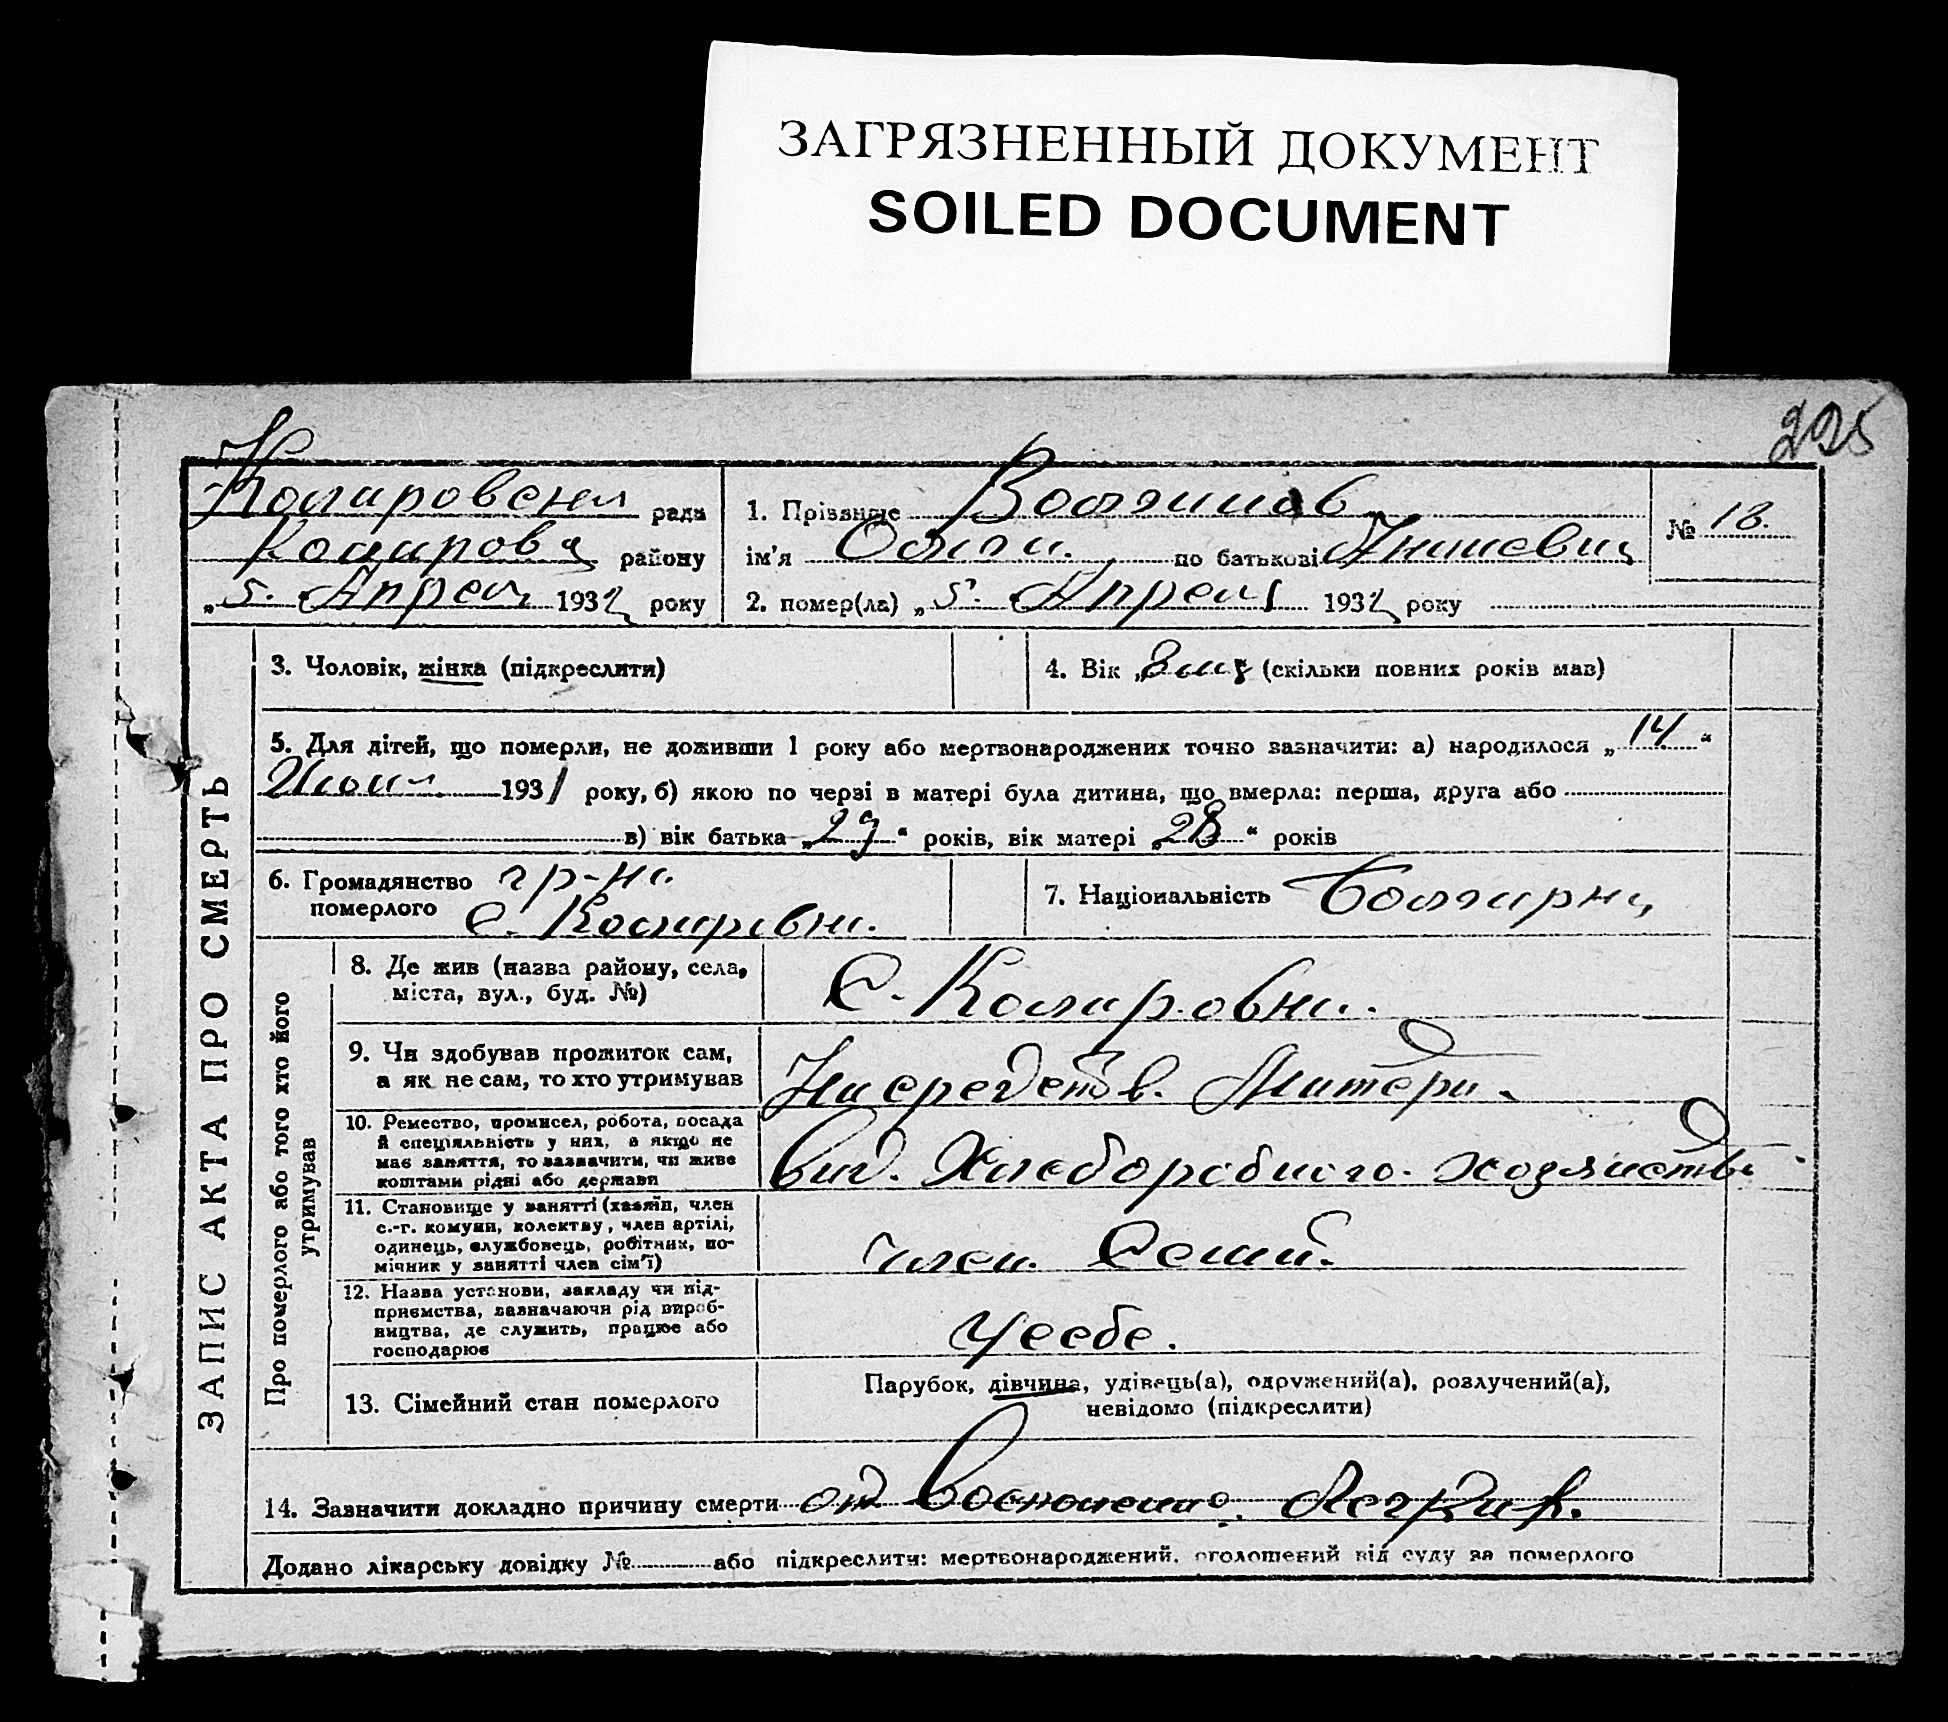 ЗАГРЯЗНЕННЫЙ ДОКУМЕНТ
SOILED DOCUMENT
225
Коларовская рада
Коларовз району
„5. Апреля 1932 року
1. Прізвище
ім'я Ольга. по батькові
№ 18.
2. помер(ла) „5. Апреля 1932 року
ЗАПИС АКТА ПРО СМЕРТЬ
3. Чоловік, жінка (підкреслити)
4. Вік (скільки повних років мав)
5. Для дітей, що померли, не доживши 1 року або мертвонароджених точно зазначити: а) народилося „14“
Июля 1931 року, б) якою по черзі в матері була дитина, що вмерла: перша, друга або
в) вік батька „29“ років, вік матері „28“ років
6. Громадянство гр-ка
померлого С. Коларовка.
7. Національність Болгарка
Про померлого або того хто його утримував
8. Де жив (назва району, села,
міста, вул., буд. №)
С. Коларовка.
9. Чи здобував прожиток сам,
а як не сам, то хто утримував
На средств. Матери.
10. Ремество, промисел, робота, посада
й спеціяльність у них, а якщо не
має заняття, то зазначити, чи живе
коштами рідні або держави
Вид. Хлеборобного. хозяйства
11. Становище у занятті (хазяїн, член
с.-г. комуни, колективу, член артілі,
одинець, службовець, робітник, по-
мічник у занятті член сім'ї)
член. Семьи.
12. Назва установи, закладу чи під-
приємства, зазначаючи рід вироб-
ництва, де служить, працює або
господарює
У себе.
13. Сімейний стан померлого
Парубок, дівчина, удівець(а), одружений(а), розлучений(а),
невідомо (підкреслити)
14. Зазначити докладно причину смерти от Воспаления. Легких.
Додано лікарську довідку № або підкреслити: мертвонароджений, оголошений від суду за померлого